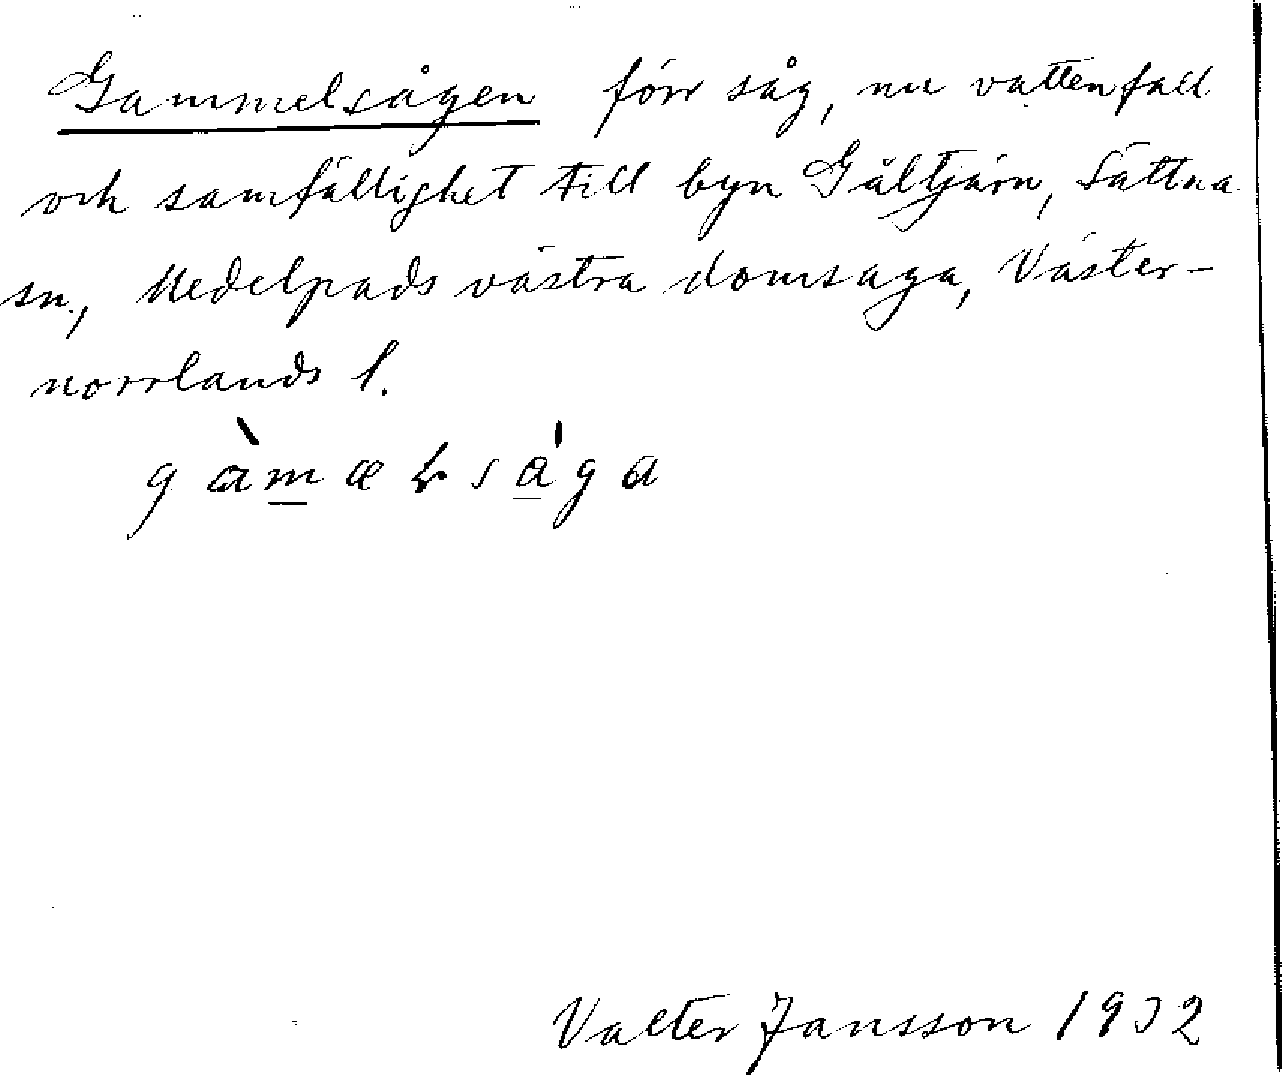 Gammelsågen förr såg, nu vattenfall
och samfällighet till byn Gåltjärn, Sättna
sn., Medelpads västra domsaga, Väster-
norrlands l.
Valter Jansson 1932